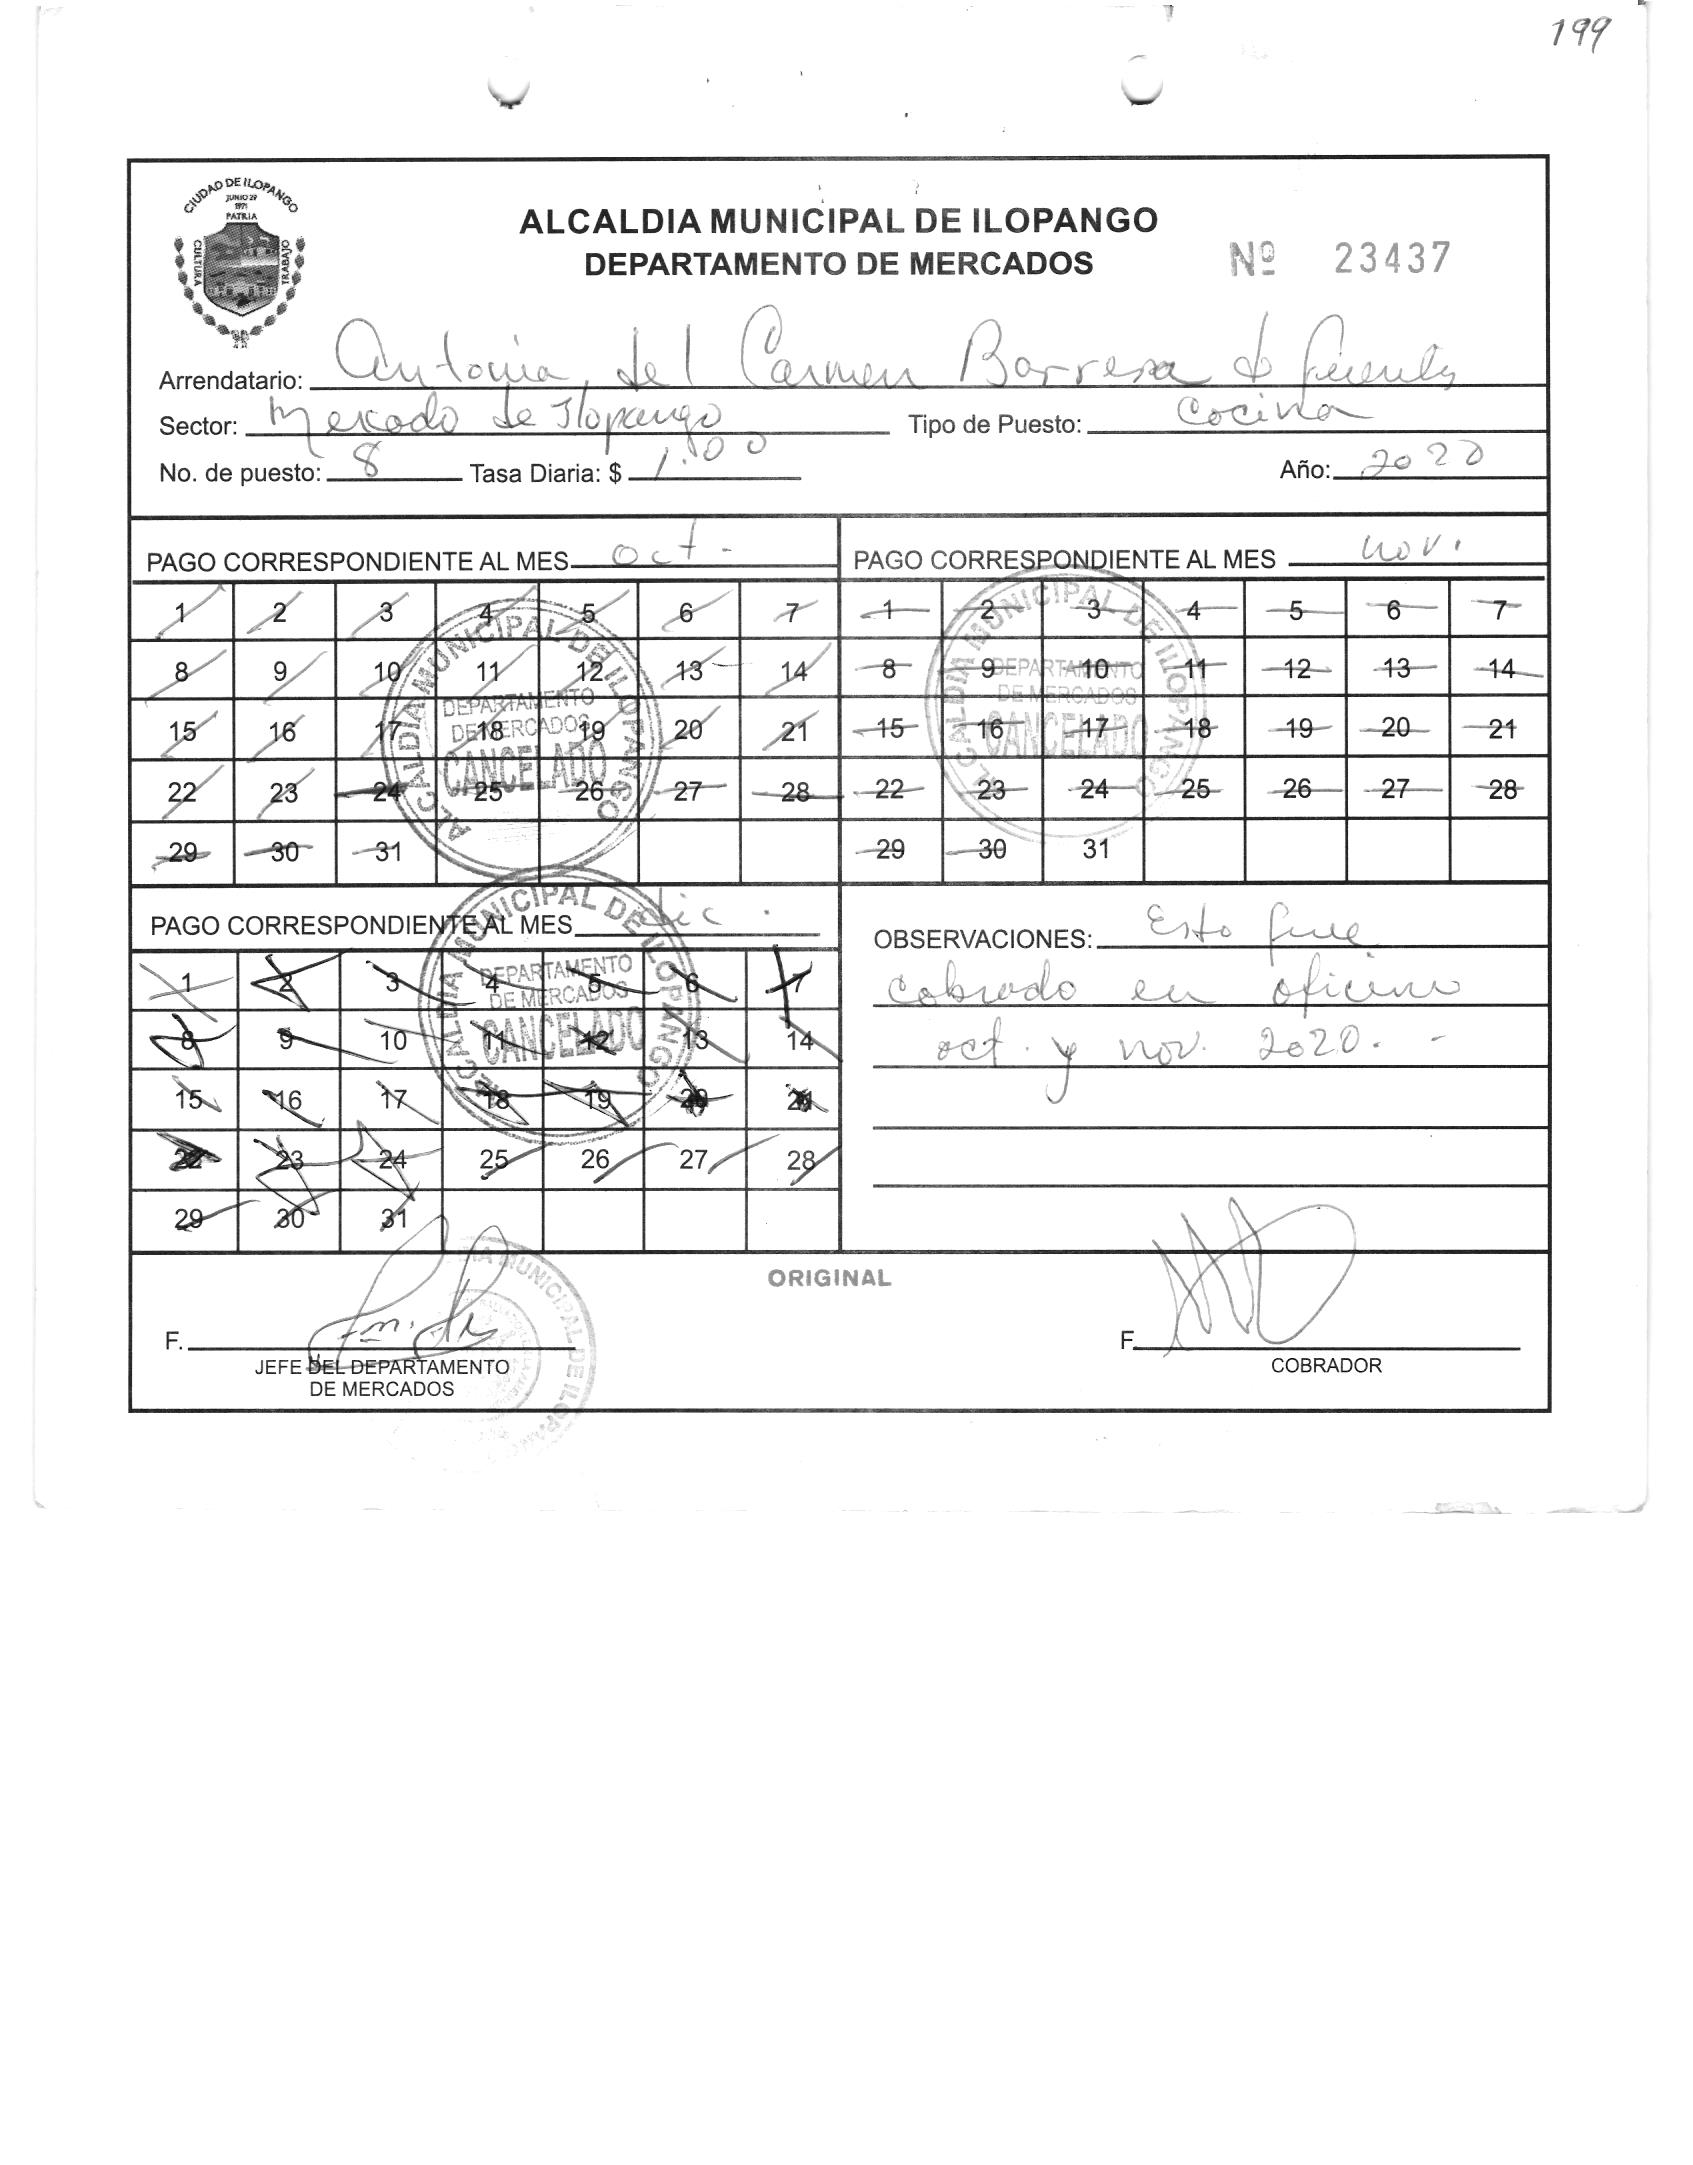 199
CIUDAD DE ILOPANGO
JUNIO 29
1971
PATRIA
CULTURA
TRABAJO
ALCALDIA MUNICIPAL DE ILOPANGO
DEPARTAMENTO DE MERCADOS
Nº 23437
Arrendatario: Antonia del Carmen Barrera de Fuentes
Sector: Mercado de Ilopango Tipo de Puesto: Cocina
No. de puesto: 8 Tasa Diaria: $ 1.00 Año: 2020
PAGO CORRESPONDIENTE AL MES oct-
1 2 3 4 5 6 7
8 9 10 11 12 13 14
15 16 17 18 19 20 21
22 23 24 25 26 27 28
29 30 31
ALCALDIA MUNICIPAL DE ILOPANGO
DEPARTAMENTO
DE MERCADOS
CANCELADO
PAGO CORRESPONDIENTE AL MES nov.
1 2 3 4 5 6 7
8 9 10 11 12 13 14
15 16 17 18 19 20 21
22 23 24 25 26 27 28
29 30 31
ALCALDIA MUNICIPAL DE ILOPANGO
DEPARTAMENTO
DE MERCADOS
CANCELADO
PAGO CORRESPONDIENTE AL MES dic.
1 2 3 4 5 6 7
8 9 10 11 12 13 14
15 16 17 18 19 20 21
22 23 24 25 26 27 28
29 30 31
ALCALDIA MUNICIPAL DE ILOPANGO
DEPARTAMENTO
DE MERCADOS
CANCELADO
OBSERVACIONES: Esto fue
cobrado en oficina
oct. y nov. 2020.-
ORIGINAL
F.
JEFE DEL DEPARTAMENTO
DE MERCADOS
MUNICIPAL DE ILOPANGO
F.
COBRADOR